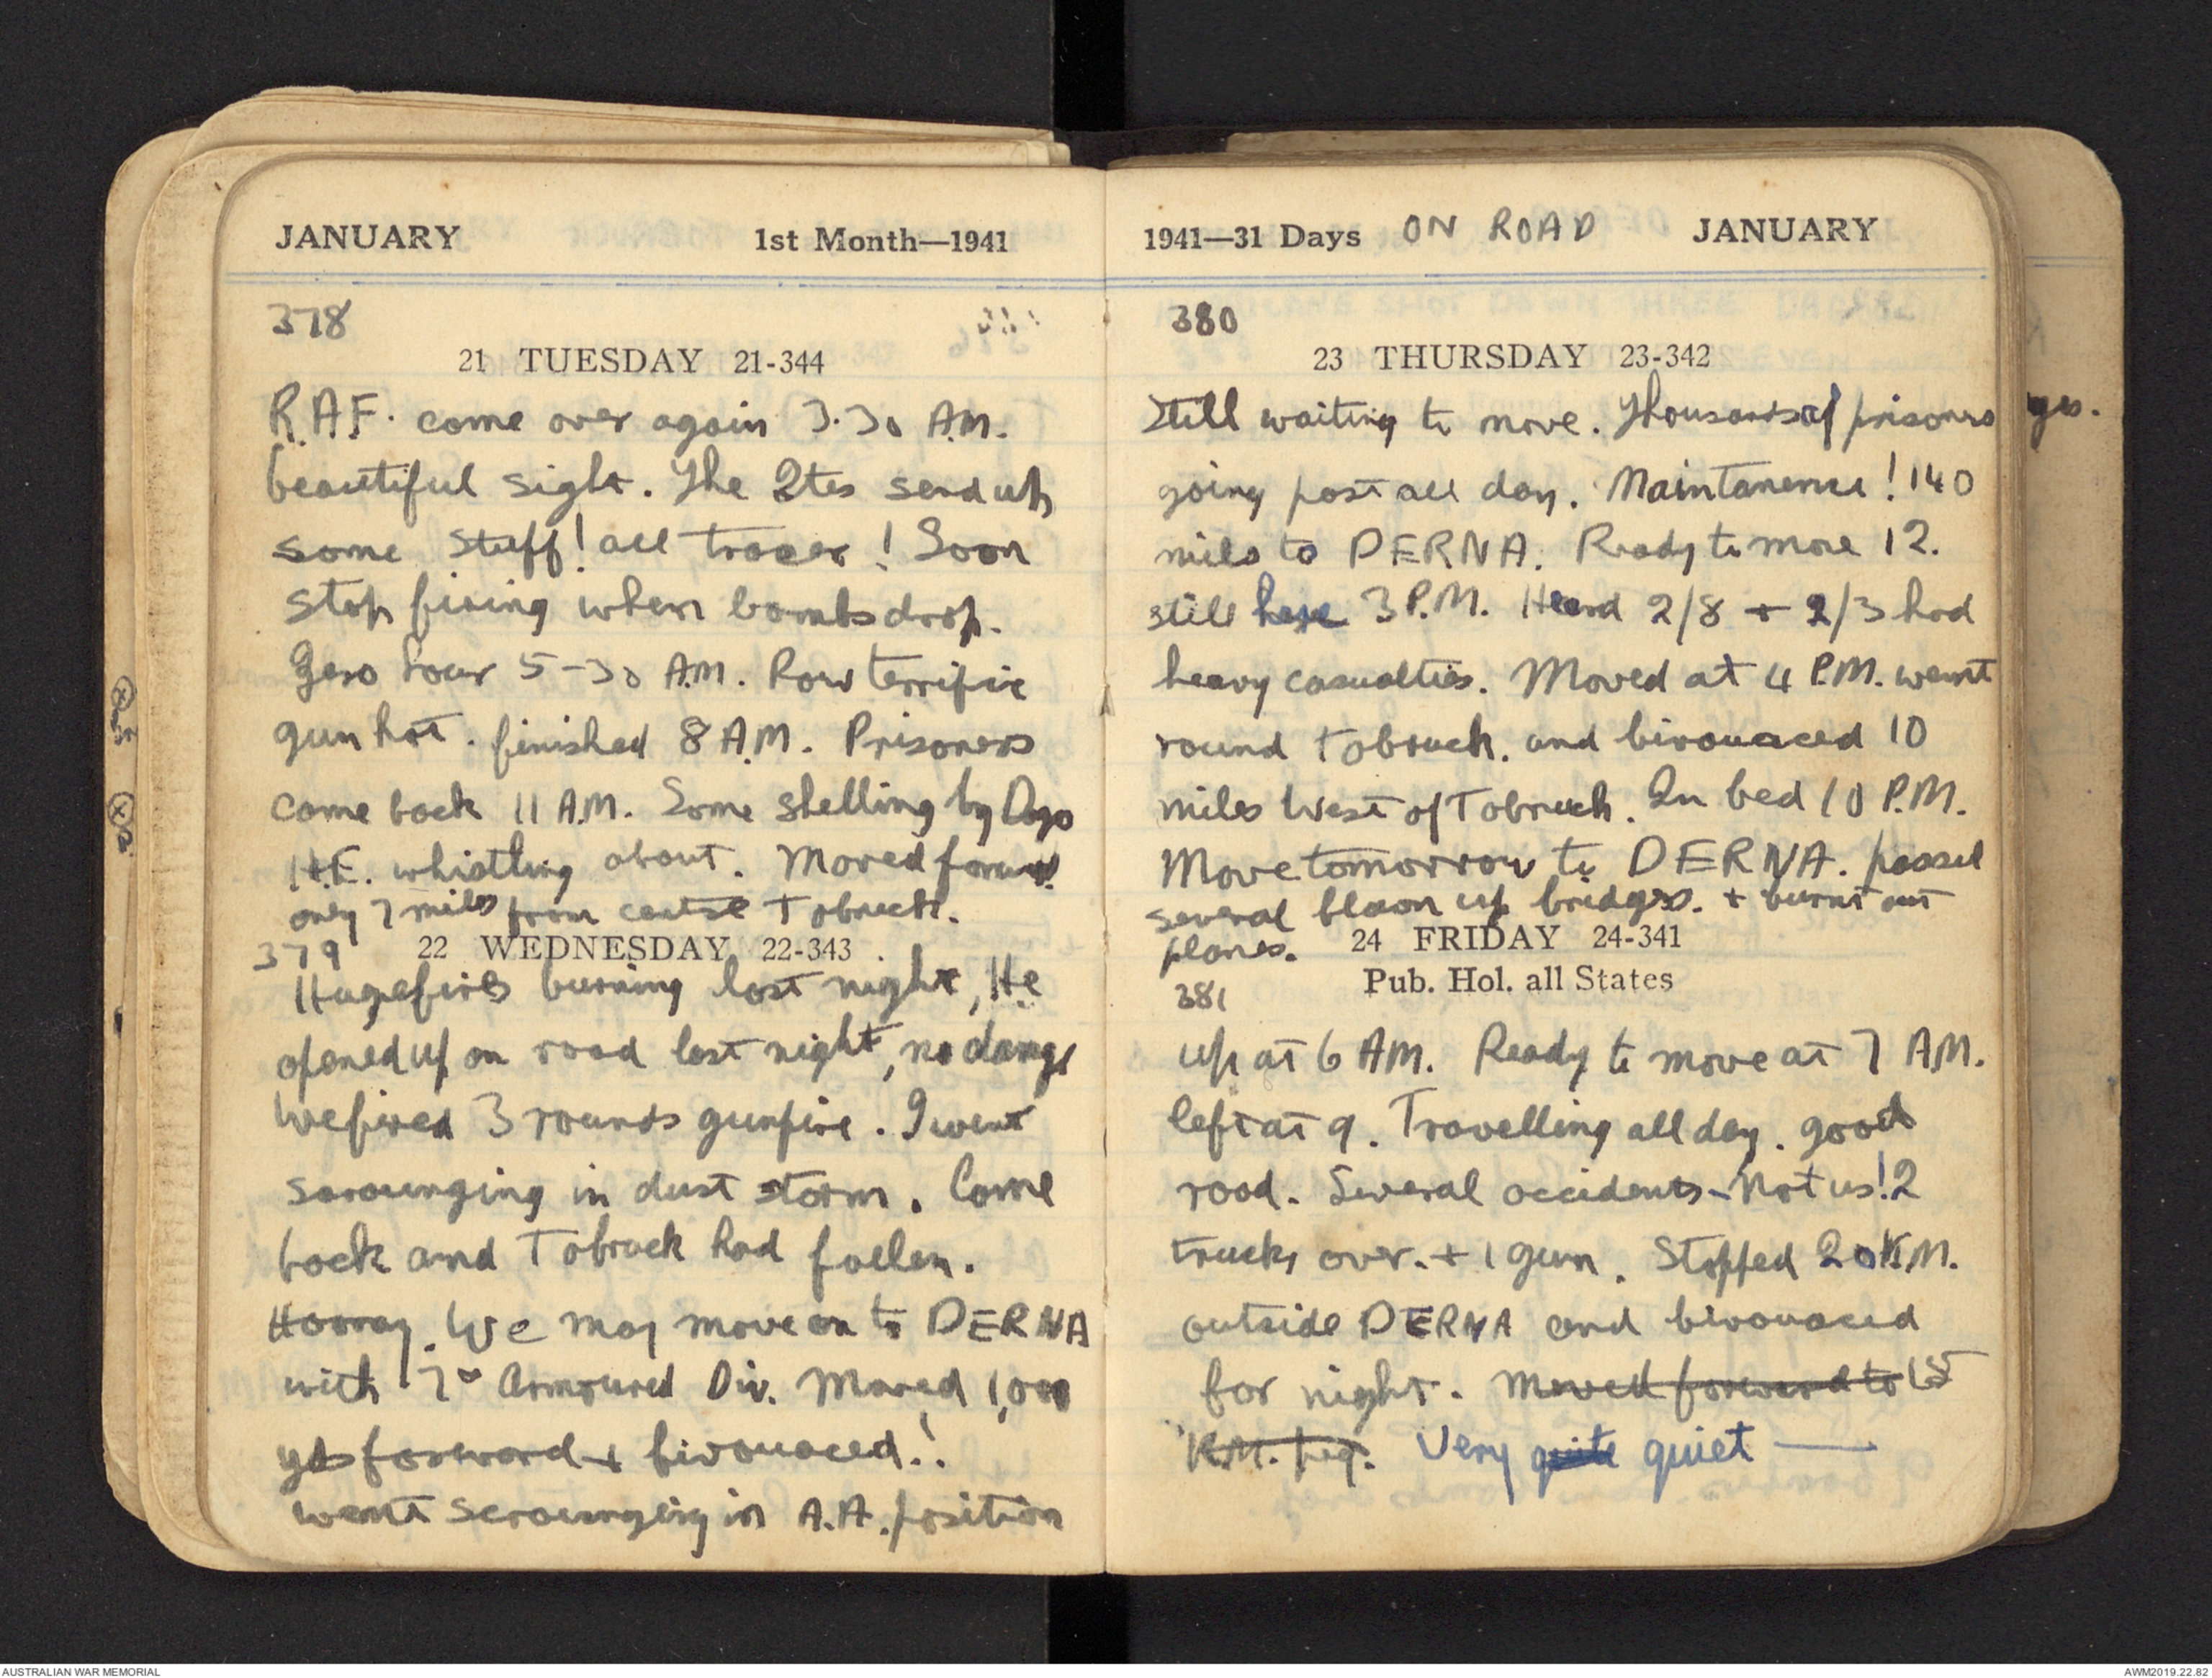 JANUARY 1st Month—1941
378
21 TUESDAY 21-344
R.A.F. come over again 3.30 A.M.
beautiful sight. The Ites send up
some stuff! all tracer! Soon
stop firing when bombs drop.
Zero hour 5-30 A.M. Row terrific
gun hot. finished 8 A.M. Prisoners
come back 11 A.M. Some shelling by Dago
H.E. whistling about. Moved forward
only 7 miles from centre Tobruch.
379 22 WEDNESDAY 22-343
Huge fires burning last night, He
opened up on road last night, no damge
We fired 3 rounds gunfire. I went
scrounging in dust storm. Come
back and Tobruck had fallen.
Hooray. We may move on to DERNA
with 7th Armoured Div. Moved 1,000
yds forward + bivouaced!
went scrounging in A.A. position
1941—31 Days ON ROAD JANUARY
380
23 THURSDAY 23-342
Still waiting to move. Thousands of prisoners
going past all day. Maintanence! 140
miles to DERNA. Ready to move 12.
still here 3 P.M. Heard 2/8 + 2/3 had
heavy casualties. Moved at 4 P.M. went
round Tobruch. and bivouaced 10
miles West of Tobruch. In bed 10 P.M.
Move tomorrow to DERNA. passed
several blown up bridges. + burnt out
planes. 24 FRIDAY 24-341
Pub. Hol. all States
381
up at 6 AM. Ready to move at 7 AM.
left at 9. Travelling all day. good
road. Several accidents - Not us! 2
trucks over. + 1 gun. Stopped 20 KM.
outside DERNA and bivouaced
for night. Moved forward to 15
K.M. peg. Very quite quiet —
yes.
AUSTRALIAN WAR MEMORIAL
AWM2019.22.82